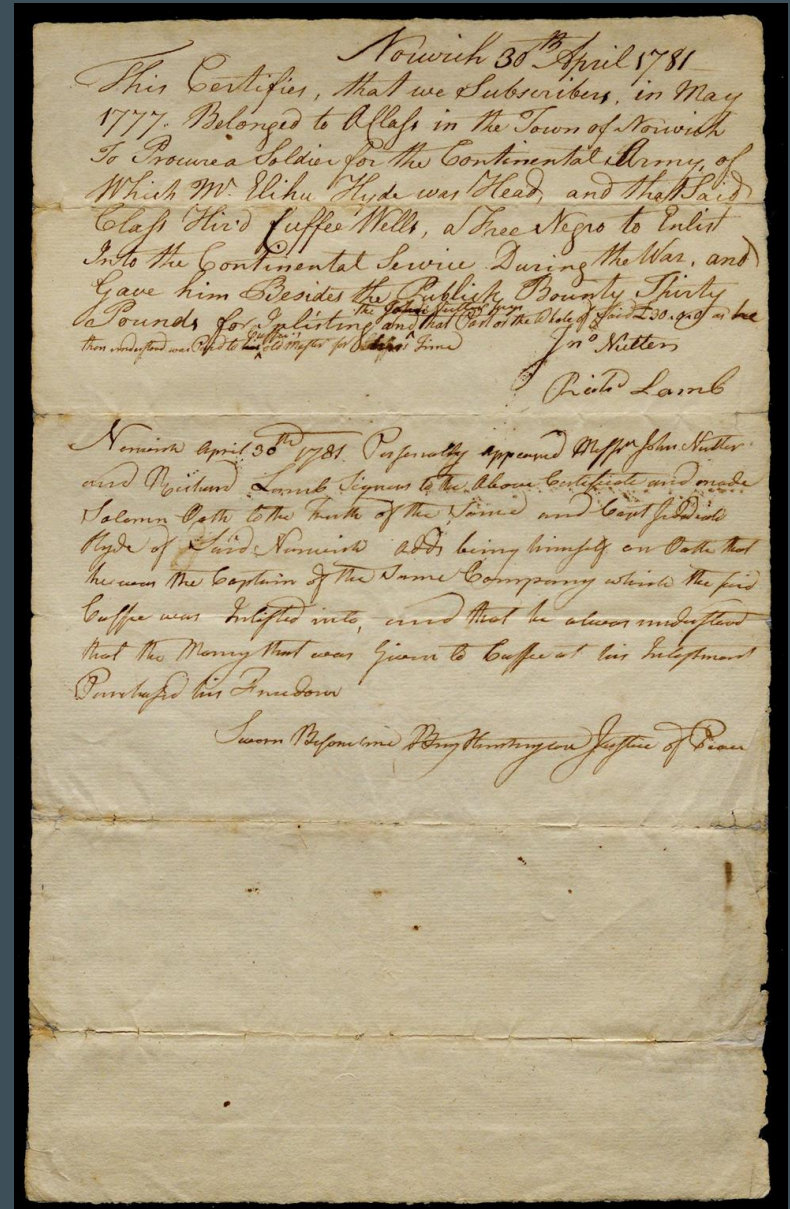 Norwich 30th April 1781
This Certifies, that we Subscribers, in May
1777. Belonged to A Class in the Town of Norwich
To Procure a Soldier for the Continental Army, of
Which Mr. Elihu Hyde was Head, and that Said
Class Hir'd Cuffee Wells, a Free Negro to Enlist
Into the Continental Service During the War, and
Gave him Besides the Publick Bounty Thirty
the
Pounds for Inlisting and that Part or the Whole of Said £30.0.0 as we
Cuffee's
then understood was Paid to old Master for Time
Jno Nutter
Richd Lamb
Norwich April 30th 1781. Personally appeared Messrs John Nutter
and Richard Lamb Signers to the Above Certificate and made
Solemn Oath to the Truth of the Same and Capt Jedidiah
Hyde of Said Norwich adds being himself on Oath that
he was the Captain of the Same Company which the said
Cuffee was Inlisted into, and that he always understood
that the Money that was Given to Cuffee at his Inlistment
Purchased his Freedom
Sworn Before me Benj Huntington Justice of Peace